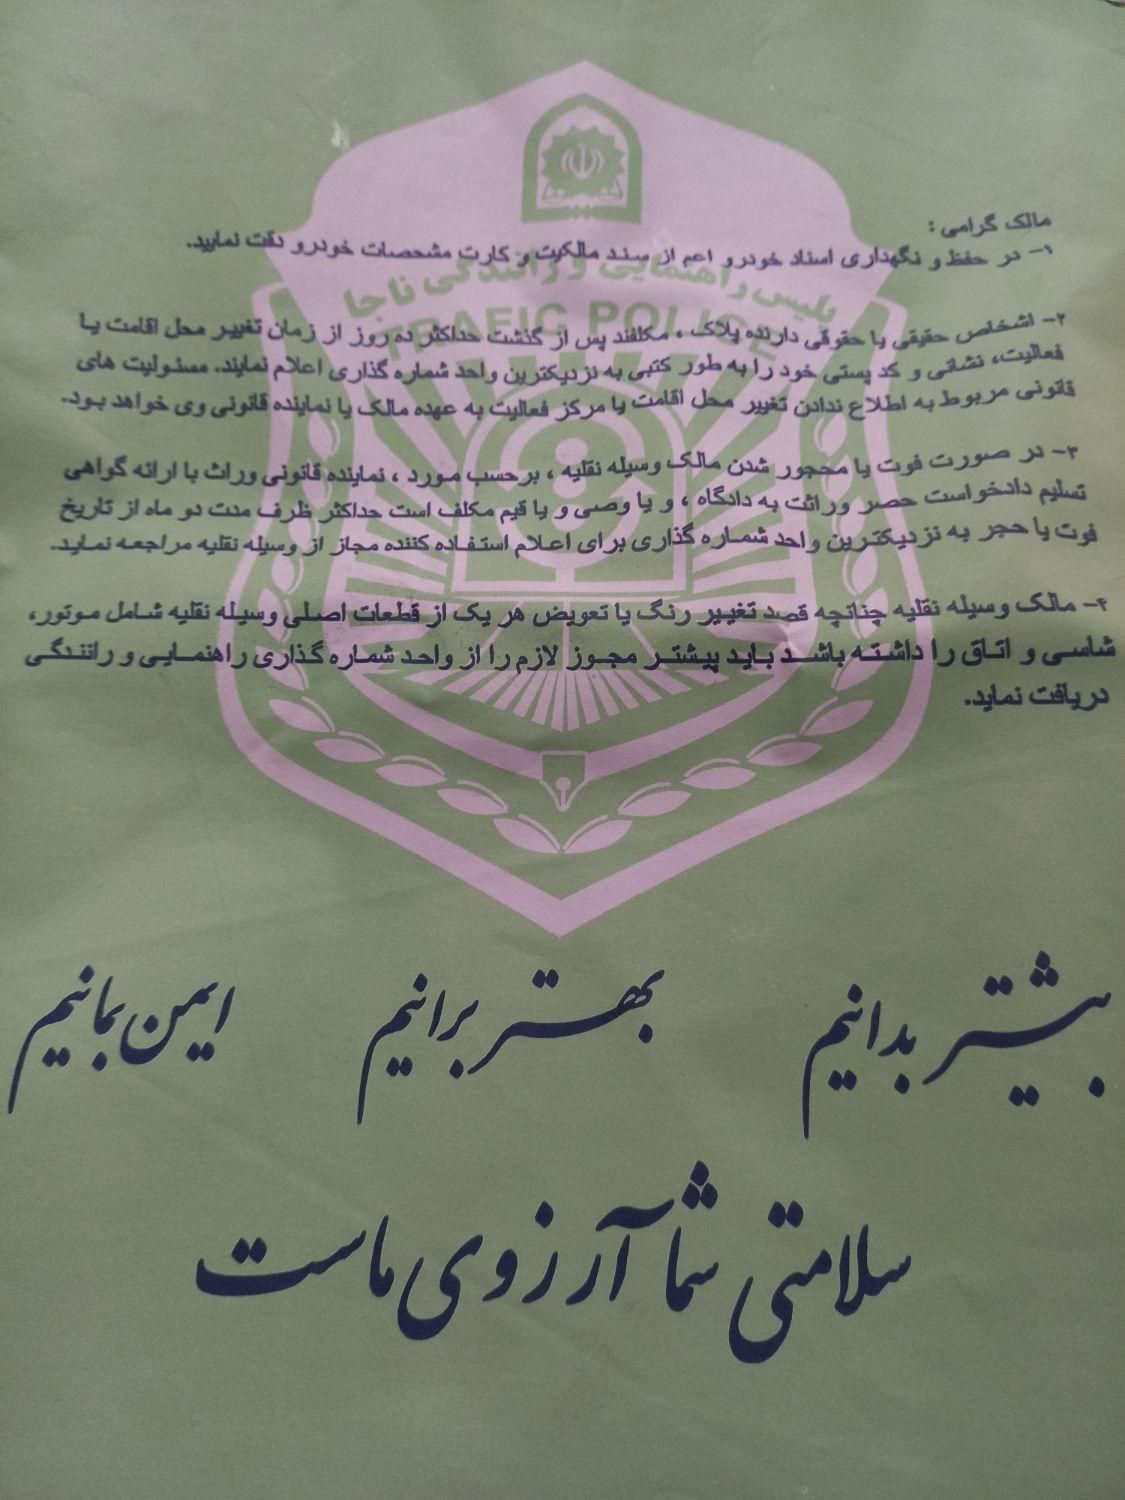 پلیس راهنمایی و رانندگی ناجا
TRAFFIC POLICE
مالک گرامی :
۱- در حفظ و نگهداری اسناد خودرو اعم از سند مالکیت و کارت مشخصات خودرو دقت نمایید.
۲- اشخاص حقیقی یا حقوقی دارنده پلاک ، مکلفند پس از گذشت حداکثر ده روز از زمان تغییر محل اقامت یا
فعالیت، نشانی و کد پستی خود را به طور کتبی به نزدیکترین واحد شماره گذاری اعلام نمایند. مسئولیت های
قانونی مربوط به اطلاع ندادن تغییر محل اقامت یا مرکز فعالیت به عهده مالک یا نماینده قانونی وی خواهد بود.
۳- در صورت فوت یا محجور شدن مالک وسیله نقلیه ، برحسب مورد ، نماینده قانونی وراث با ارائه گواهی
تسلیم دادخواست حصر وراثت به دادگاه ، و یا وصی و یا قیم مکلف است حداکثر ظرف مدت دو ماه از تاریخ
فوت یا حجر به نزدیکترین واحد شماره گذاری برای اعلام استفاده کننده مجاز از وسیله نقلیه مراجعه نماید.
۴- مالک وسیله نقلیه چنانچه قصد تغییر رنگ یا تعویض هر یک از قطعات اصلی وسیله نقلیه شامل موتور،
شاسی و اتاق را داشته باشد باید پیشتر مجوز لازم را از واحد شماره گذاری راهنمایی و رانندگی
دریافت نماید.
بیشتر بدانیم بهتر برانیم ایمن بمانیم
سلامتی شما آرزوی ماست